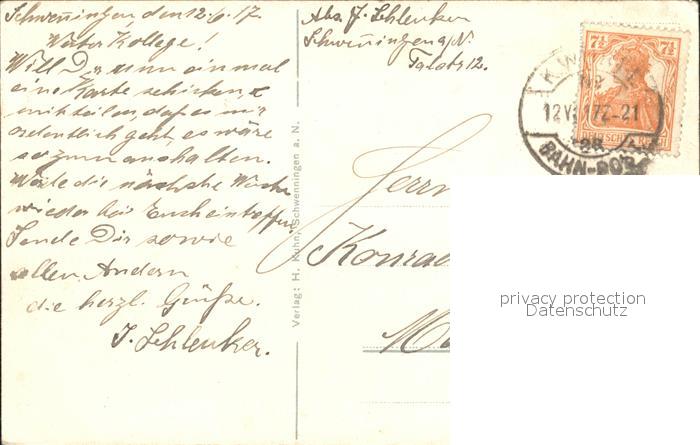 Schwenningen den 12.6.17.
Werter Kollege!
Will Dir nun einmal
eine Karte schicken, &
mitteilen, daß es mir
ordentlich geht, es wäre
so zum aushalten.
Werde die nächste Woche
wieder bei Euch eintreffen.
Sende Dir sowie
allen Andern
die herzl. Grüße.
J. Schlenker.
Verlag: H. Kuhn, Schwenningen a. N.
Abs. J. Schlenker
Schwenningen a/N.
Talstr 12.
7½ 7½
DEUTSCHES REICH
12 VI 17 2-21
BAHN-POST
Herrn
Konrad
privacy protection
Datenschutz